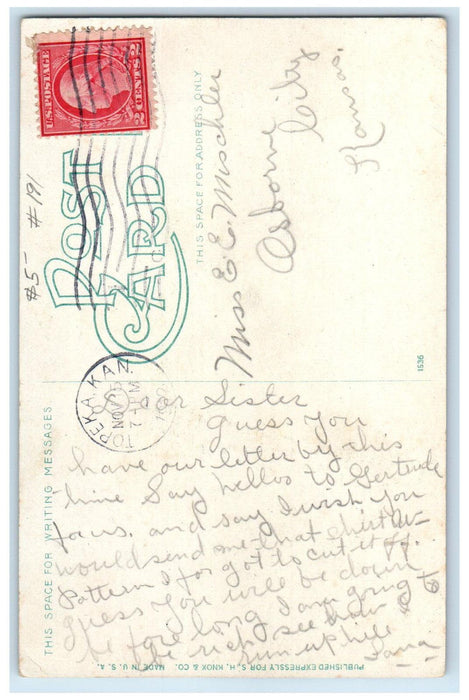 U.S. POSTAGE
2 CENTS 2
$5- #191
POST CARD
THIS SPACE FOR ADDRESS ONLY
Miss E E Mischler
Osborne City
Kansas.
TOPEKA KAN.
NOV
7 PM
THIS SPACE FOR WRITING MESSAGES
Dear Sister
Guess you
have our letter by this
time Say hellos to Gertrude
for us. and say I wish you
would send me that shirt
Pattern I for got to cut it off.
Guess you will be down
be fore long I am going to
be rich see how
run up hill
1536
PUBLISHED EXPRESSLY FOR S. H. KNOX & CO. MADE IN U. S. A.